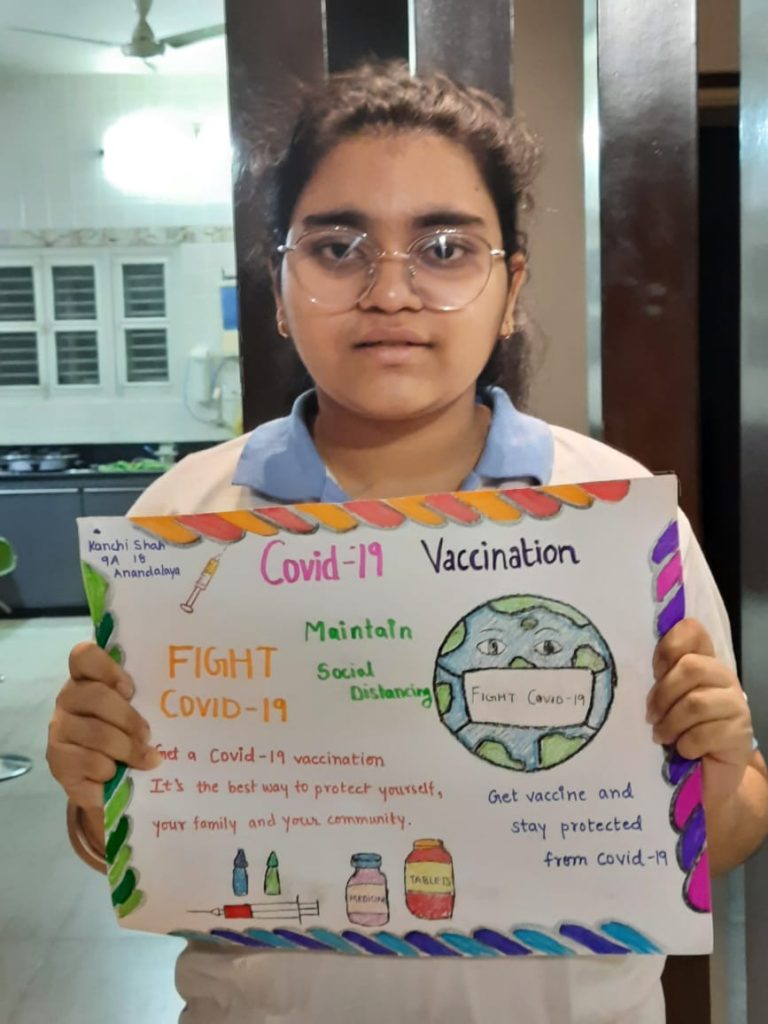 Kanchi Shah
9A 18
Anandalaya
Covid-19 Vaccination
Maintain
Social
Distancing
FIGHT
COVID-19
FIGHT COVID-19
Get a Covid-19 vaccination
It's the best way to protect yourself,
your family and your community.
Get vaccine and
stay protected
from Covid-19
MEDICINE
TABLETS